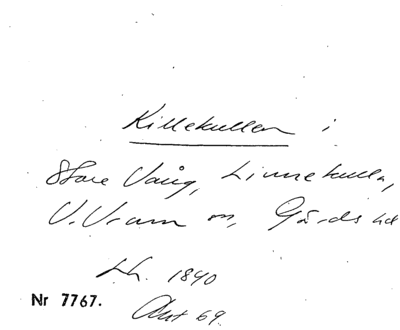 Killekullen i
Store Vång, Linnekulla,
V. Vram sn, Gärds hd
Lh. 1840
Nr 7767. Akt 69.